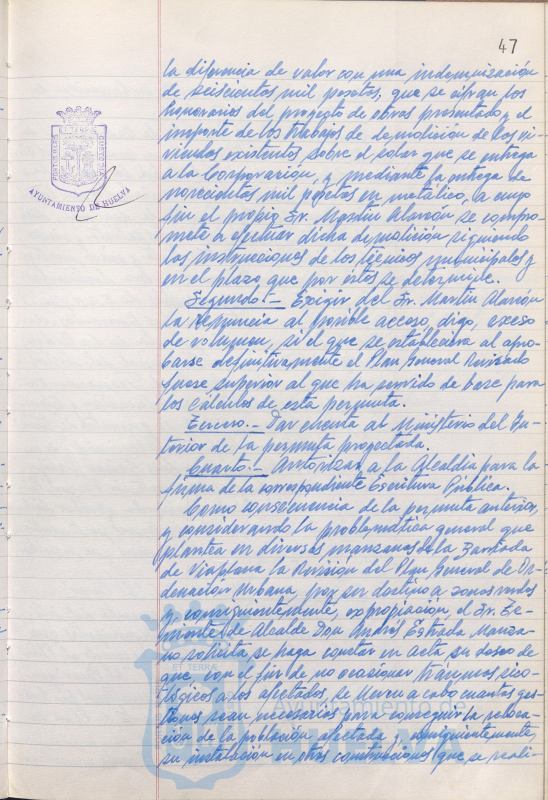 47
la diferencia de valor con una indemnización
de seiscientas mil pesetas, que se cifran los
honorarios del proyecto de obras presentado y el
importe de los trabajos de demolición de las vi-
viendas existentes sobre el solar que se entrega
a la Corporación, y mediante la entrega de
novecientas mil pesetas en metálico, a cuyo
fin el propio Sr. Martín Alarcón se compro-
mete a efectuar dicha demolición, siguiendo
las instrucciones de los técnicos municipales y
en el plazo que por éstos se determine.
Segundo.- Exigir del Sr. Martín Alarcón
la renuncia al posible acceso, digo, exceso
de volumen, si el que se estableciera al apro-
barse definitivamente el Plan General Revisado
fuese superior al que ha servido de base para
los cálculos de esta permuta.
Tercero.- Dar cuenta al Ministerio del In-
terior de la permuta proyectada.
Cuarto.- Autorizar a la Alcaldía para la
firma de la correspondiente Escritura Pública.
Como consecuencia de la permuta anterior,
y considerando la problemática general que
plantea en diversas manzanas de la Barriada
de Viaplana la Revisión del Plan General de Or-
denación Urbana, por ser destino a zonas verdes
y, consiguientemente, expropiación, el Sr. Te-
niente de Alcalde Don Andrés Estrada Manza-
no solicita se haga constar en acta su deseo de
que, con el fin de no ocasionar traumas sico-
lógicos a los afectados, se lleven a cabo cuantas ges-
tiones sean necesarias para conseguir la reloca-
ción de la población afectada y, consiguientemente,
su instalación en otras construcciones que se reali-
AYUNTAMIENTO DE HUELVA
ET TERRAE
Ayuntamiento de
HUELVA